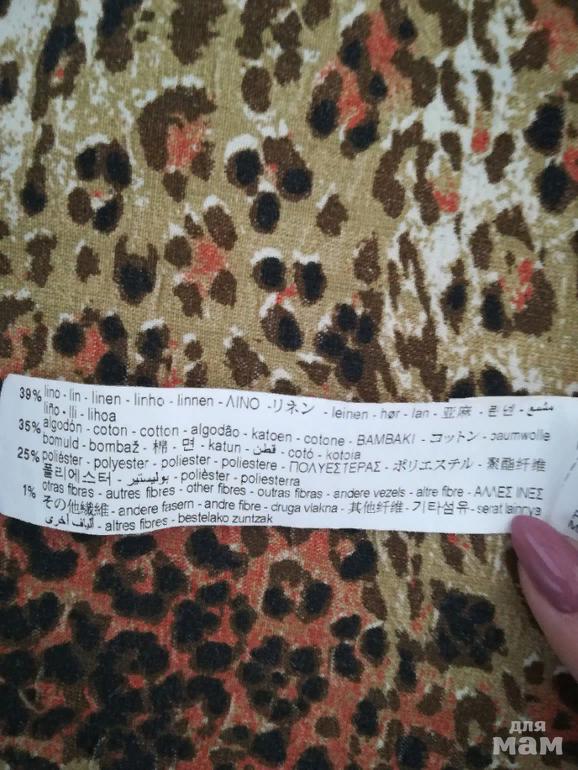 39% lino - lin - linen - linho - linnen - ΛΙΝΟ - リネン - leinen - hør - lan - 亚麻 - 린넨 -
liño - lli - lihoa
35% algodón - coton - cotton - algodão - katoen - cotone - BAMBAKI - コットン - baumwolle
bomuld - bombaž - 棉 - 면 - katun - قطن - cotó - kotoia
25% poliéster - polyester - poliester - poliestere - ΠΟΛΥΕΣΤΕΡΑΣ - ポリエステル - 聚酯纤维
폴리에스터 - بوليستير - polièster - poliesterra
1% otras fibras - autres fibres - other fibres - outras fibras - andere vezels - altre fibre - ΑΛΛΕΣ ΙΝΕΣ
その他繊維 - andere fasern - andre fibre - druga vlakna - 其他纤维 - 기타섬유 - serat lainnya
ألياف أخرى - altres fibres - bestelako zuntzak
для
мам